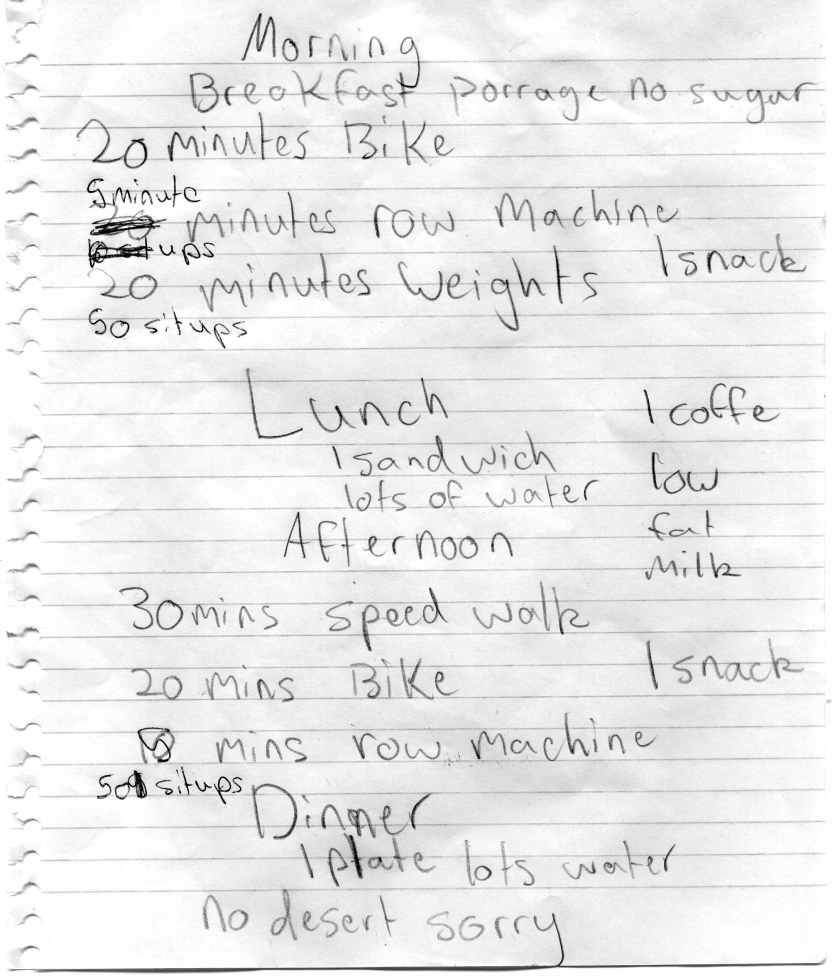 Morning
Breakfast porrage no sugar
20 minutes Bike
5 minute
minutes row Machine
ups
20 minutes weights 1 snack
50 situps
Lunch 1 coffe
1 sandwich low
lots of water fat
Afternoon Milk
30 mins speed walk
20 mins Bike 1 snack
mins row machine
50 situps
Dinner
1 plate lots water
no desert sorry